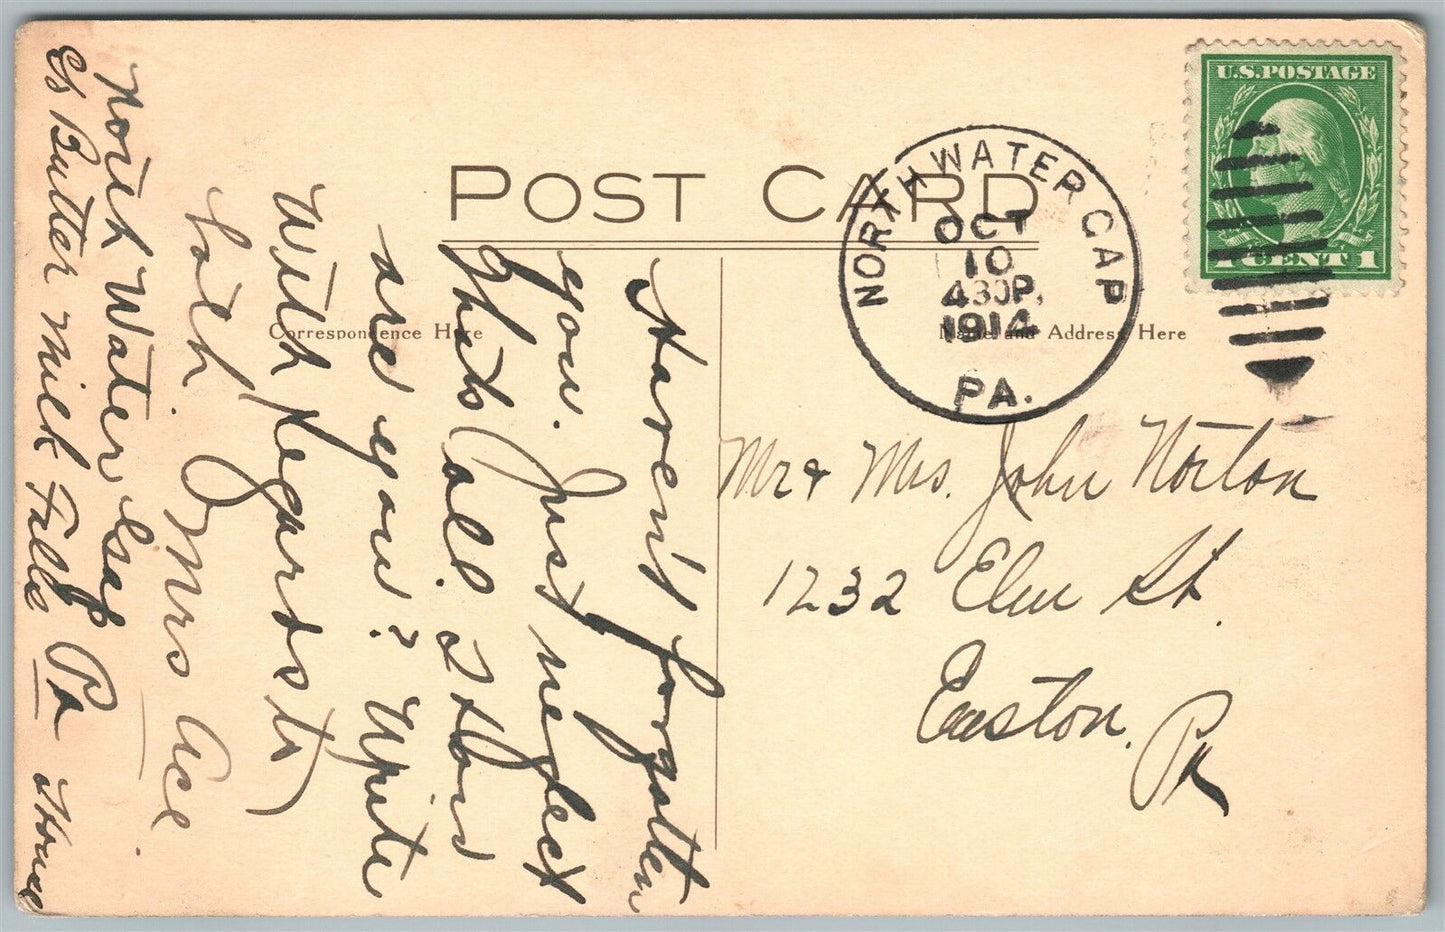 POST CARD
Correspondence Here
Name and Address Here
U.S. POSTAGE
1 CENT 1
NORTH WATER GAP
OCT
10
430P.
1914
PA.
Mr & Mrs. John Norton
1232 Elm St.
Easton, Pa
Haven't forgotten
you. Just neglect
thats all. & How
are you? Write
With Regards to
both. Mrs Ace
North Water Gap Pa
c/o Butter Milk Falls House